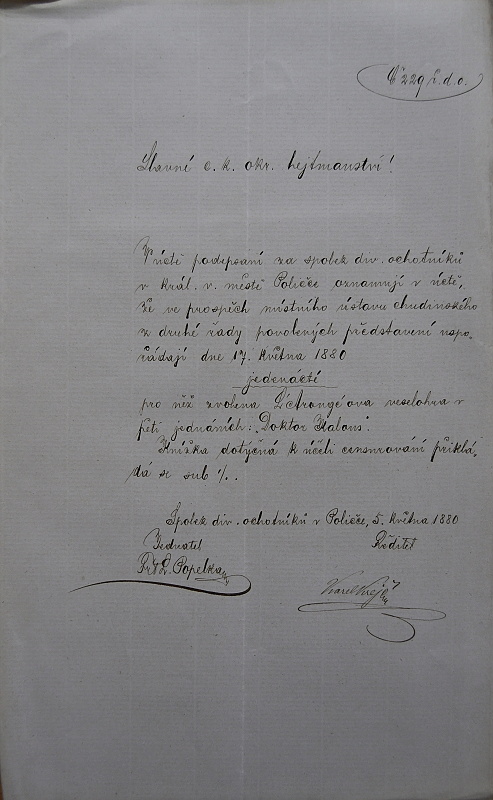 Č 229 ř. d. o.
Slavné c. k. okr. hejtmanství!
V úctě podepsaní za spolek div. ochotníků
v král. v. městě Poličce oznamují v úctě,
že ve prospěch místního ústavu chudinského
z druhé řady povolených představení uspo-
řádají dne 17. května 1880
jedenácté
pro něž zvolena L'Arrongé-ova veselohra v
pěti jednáních: „Doktor Kalous".
Knížka dotyčná k účeli censurování přiklá-
dá se sub ·/. .
Spolek div. ochotníků v Poličce, 5. května 1880
Jednatel Ředitel
Popelka
Karel